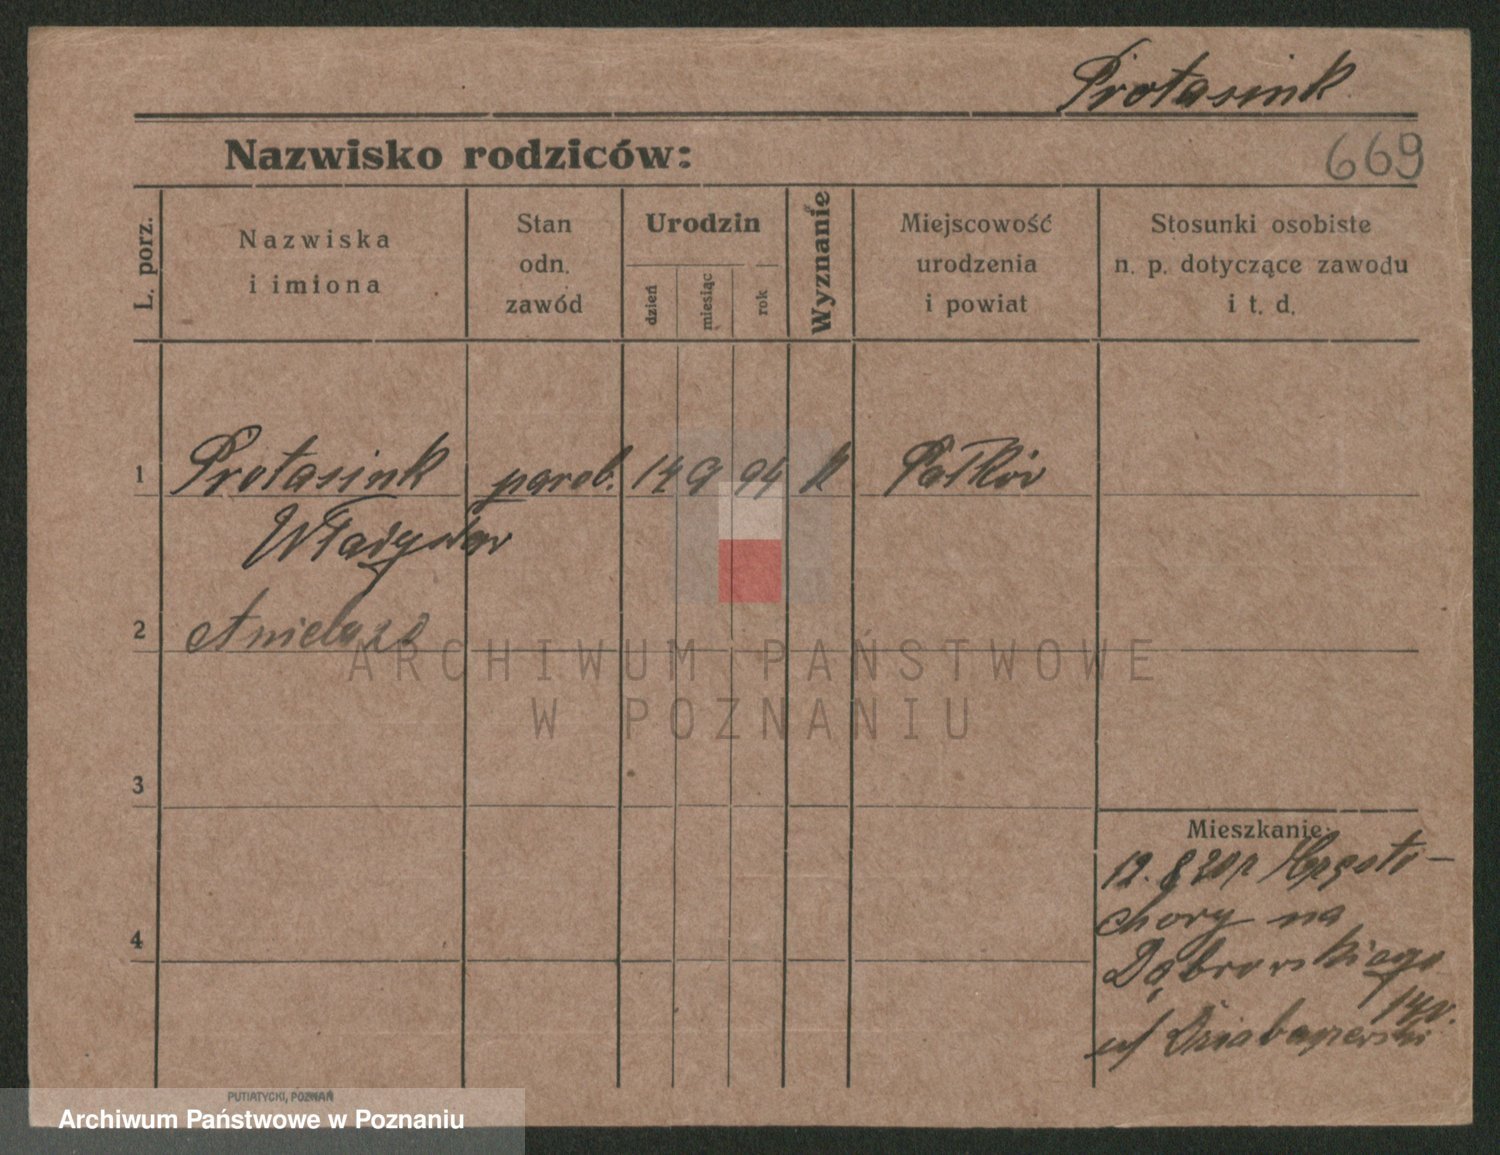 Protasiuk
Nazwisko rodziców:
669
L. porz.
Nazwiska
i imiona
Stan
odn.
zawód
Urodzin
dzień
miesiąc
rok
Wyznanie
Miejscowość
urodzenia
i powiat
Stosunki osobiste
n. p. dotyczące zawodu
i t. d.
1 Protasiuk parob. 14 9 94 k Patków
Władysław
2
3
Mieszkanie:
12. 8 20 r
chory na
4
Dąbrowskiego
PUTIATYCKI, POZNAŃ
ARCHIWUM PAŃSTWOWE
W POZNANIU
Archiwum Państwowe w Poznaniu